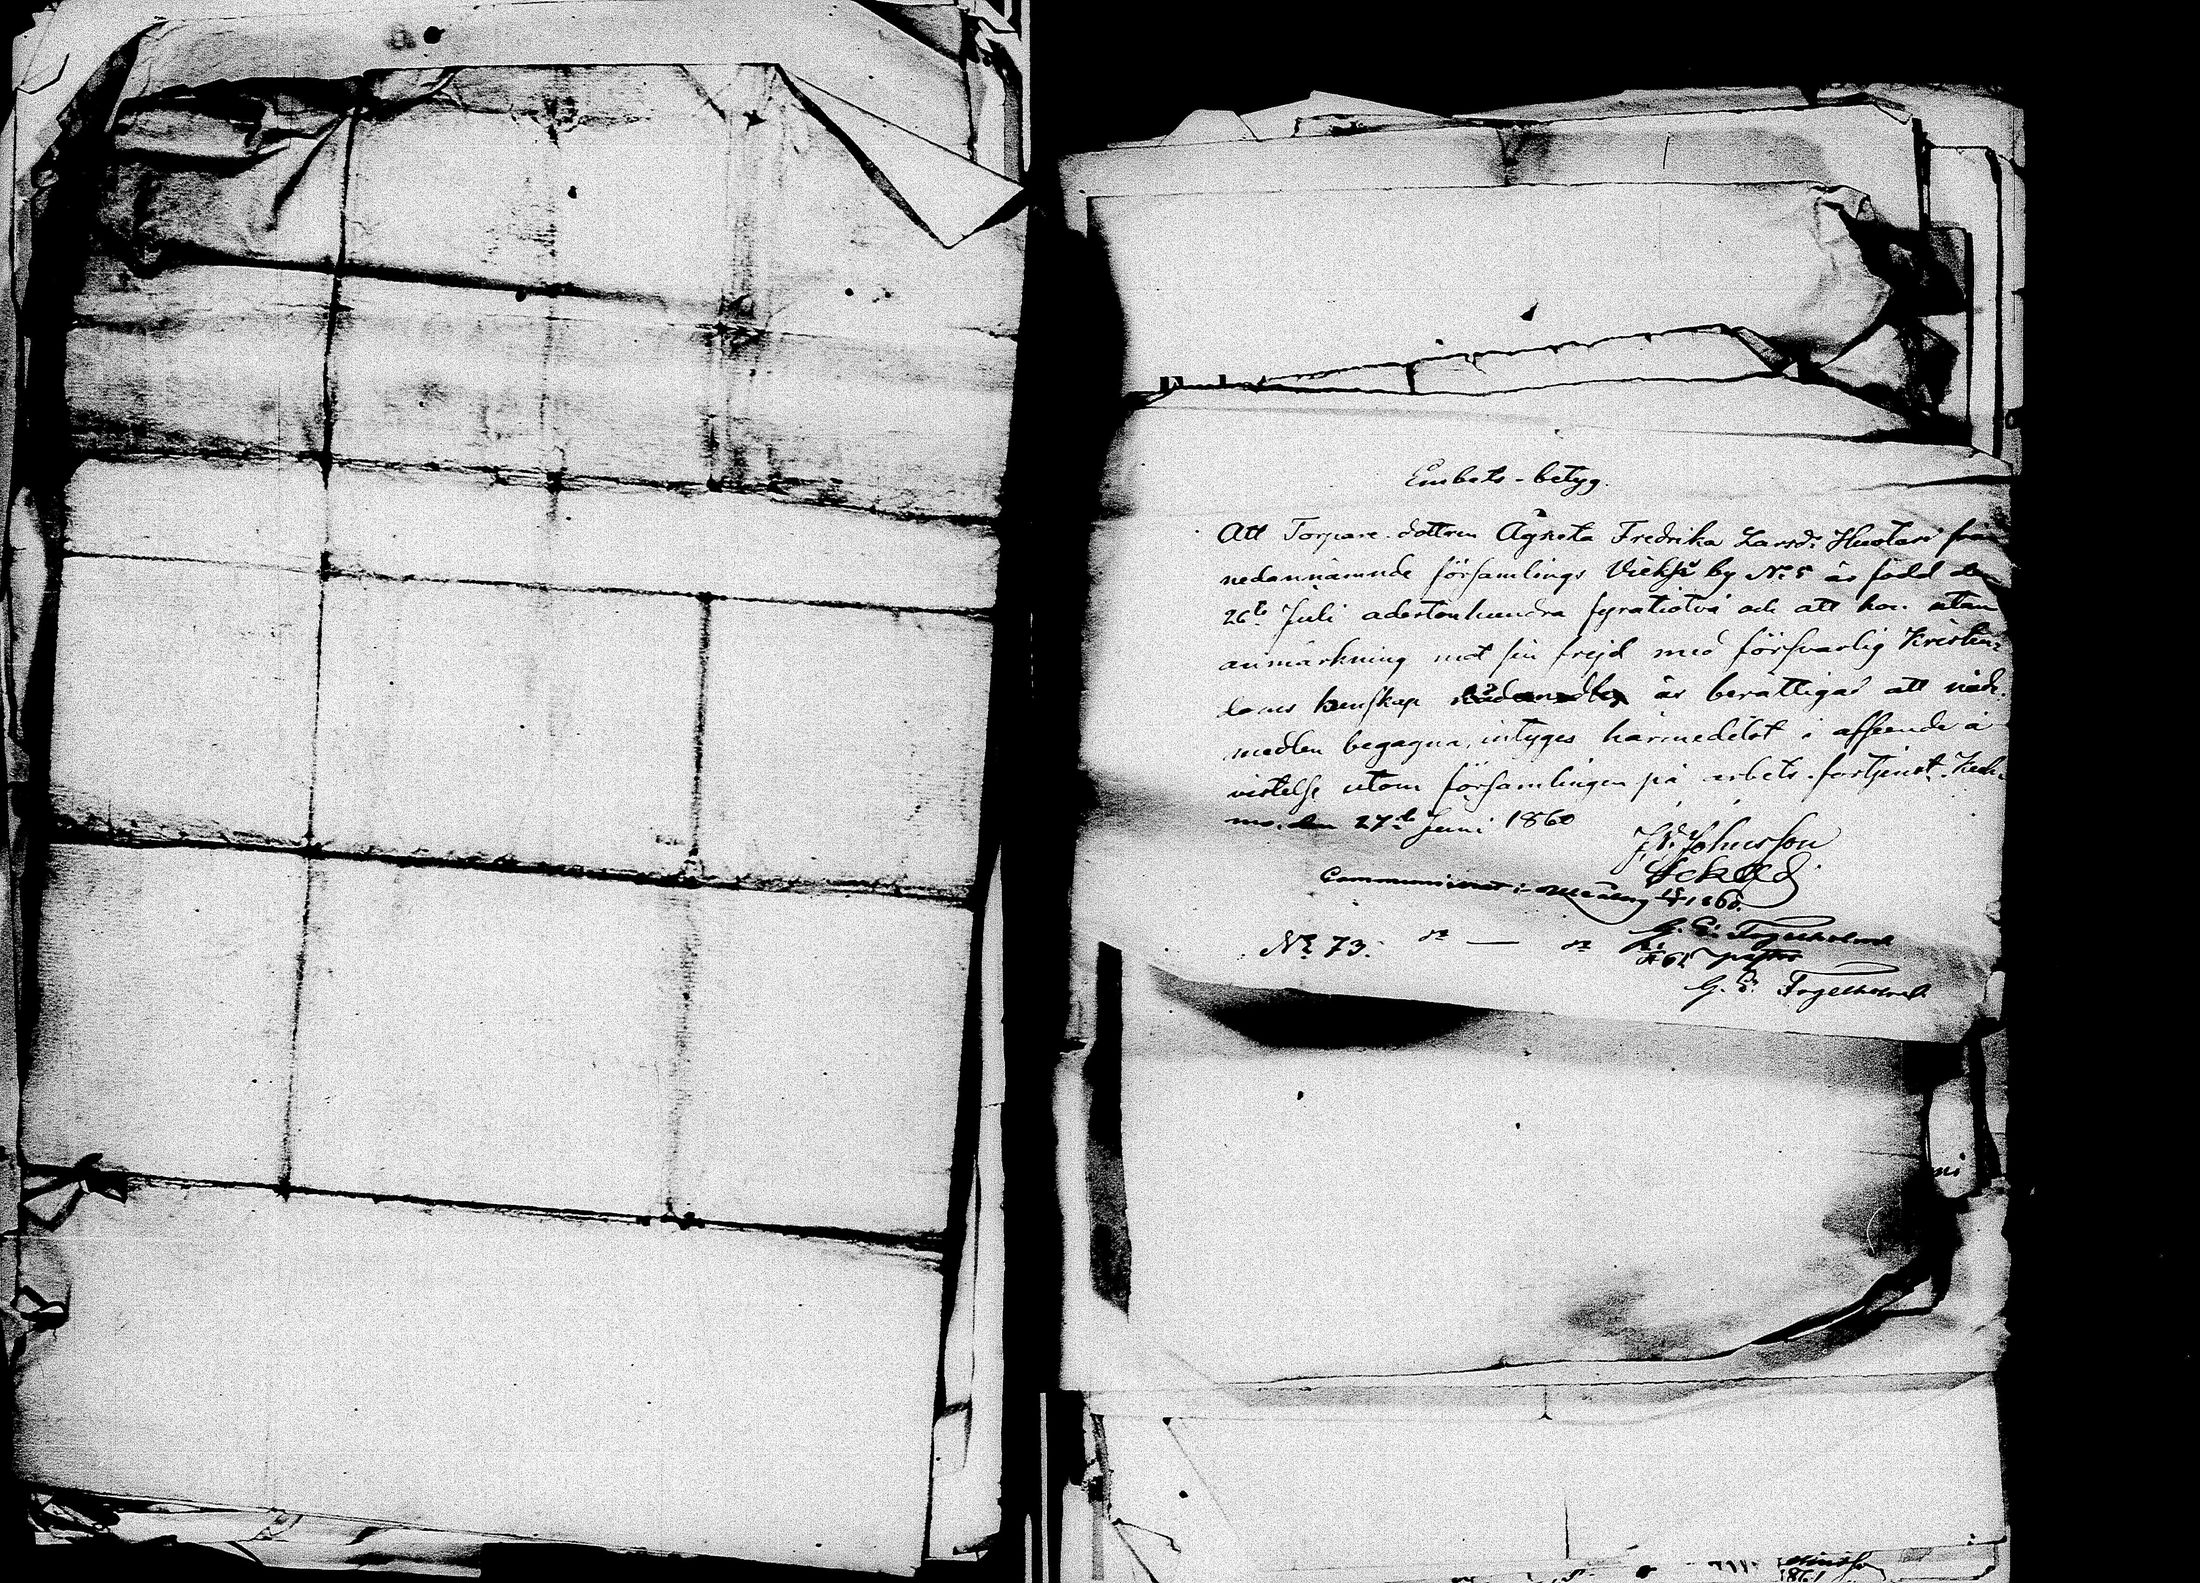 Embets-betyg.
Att Torpare-dottren Agneta Fredrika Larsd: Huotari från
nedannämnde församlings Vieksi by No 5 är född den
26te Juli adertonhundra fyratiotvå och att hon utan
anmärkning mot sin frejd med försvarlig Kristen-
doms kunskap är berättigad att nåde-
medlen begagna, intyges härmedelst i afseende å
vistelse utom församlingen på arbets-förtjenst. Kuh-
mo. den 27de Juni 1860
J. W. Johnsson
Communicerat i 1860.
G. E. Fogelholm
No 73.
G. E. Fogelholm
1861